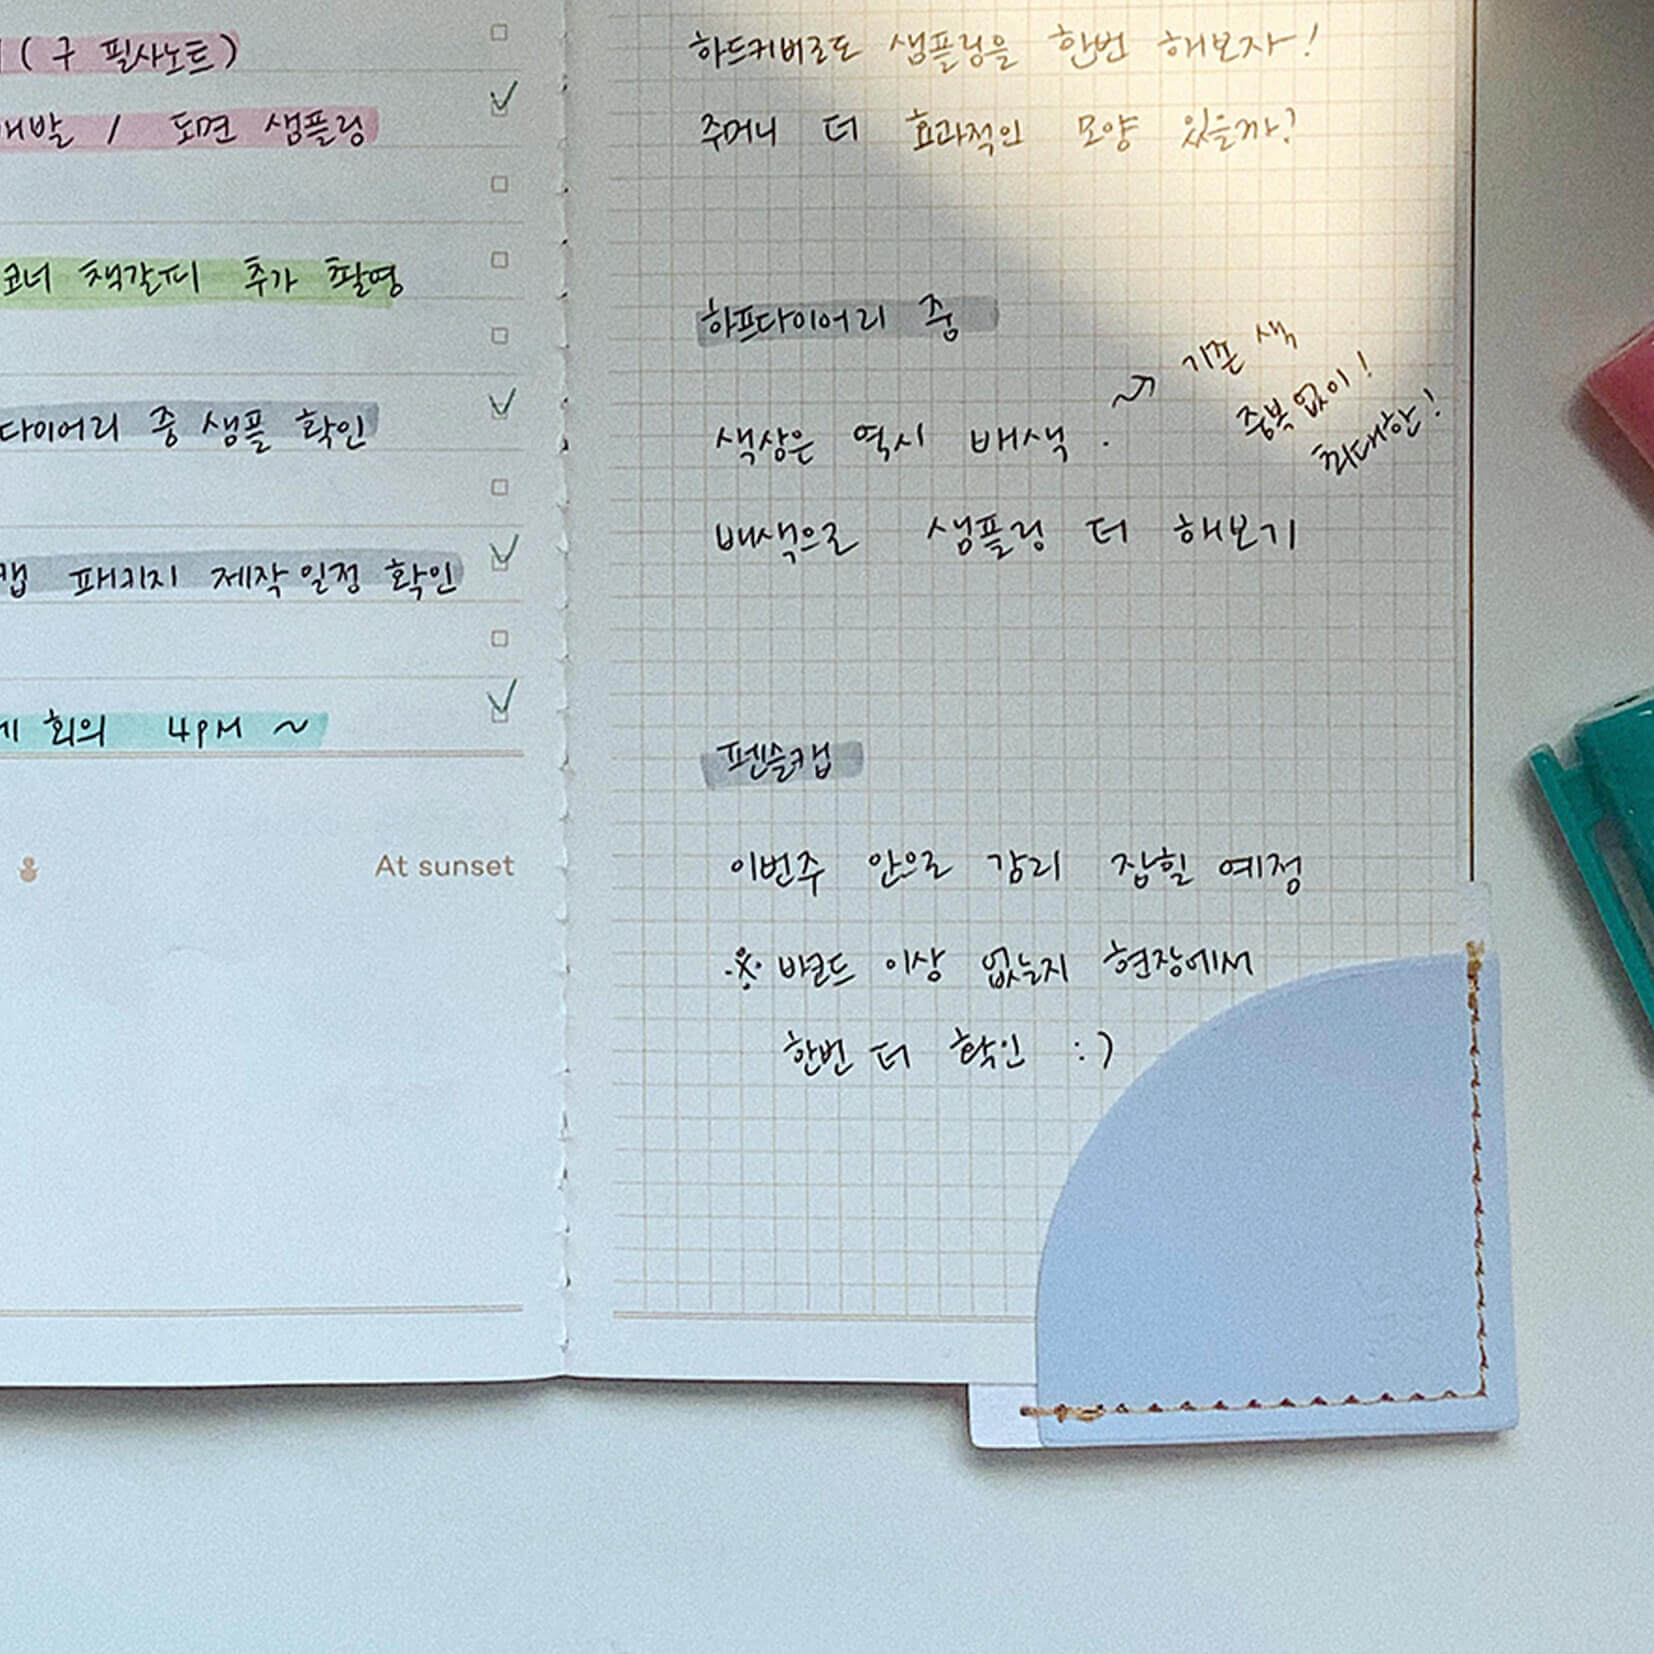 ( 구 필사노트 )
개발 / 도면 샘플링
코너 책갈피 추가 촬영
다이어리 중 샘플 확인
캡 패키지 제작일정 확인
회의 4PM ~
At sunset
하드커버로도 샘플링을 한번 해보자!
주머니 더 효과적인 모양 있을까?
하프다이어리 중
색상은 역시 배색 .
기존 색
중복 없이!
최대한!
배색으로 샘플링 더 해보기
펜슬캡
이번주 안으로 감리 잡힐 예정
※ 바코드 이상 없는지 현장에서
한번 더 확인 :)